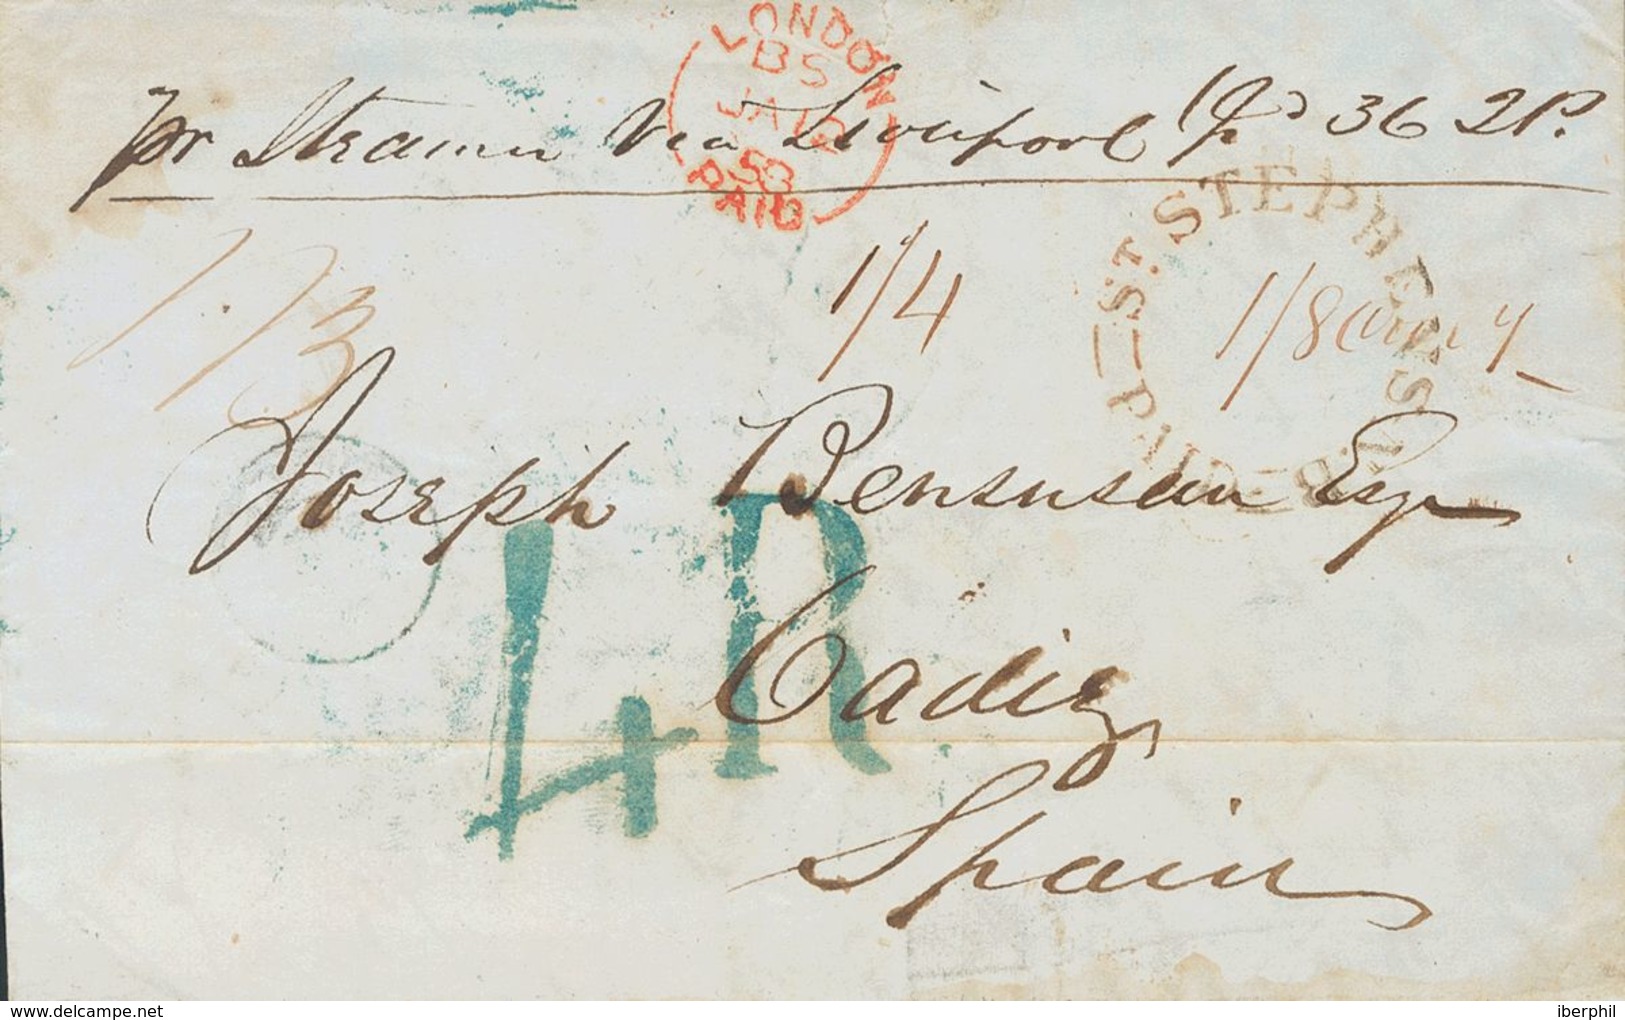 LONDON
BS
JA 12
58
PAID
pr Steamer via Liverpool
36 2P.
ST. STEPHENS
1/3
1/4
1/8
Joseph Bensusan Esqr
4R
Cadiz
Spain
delcampe.net
iberphil